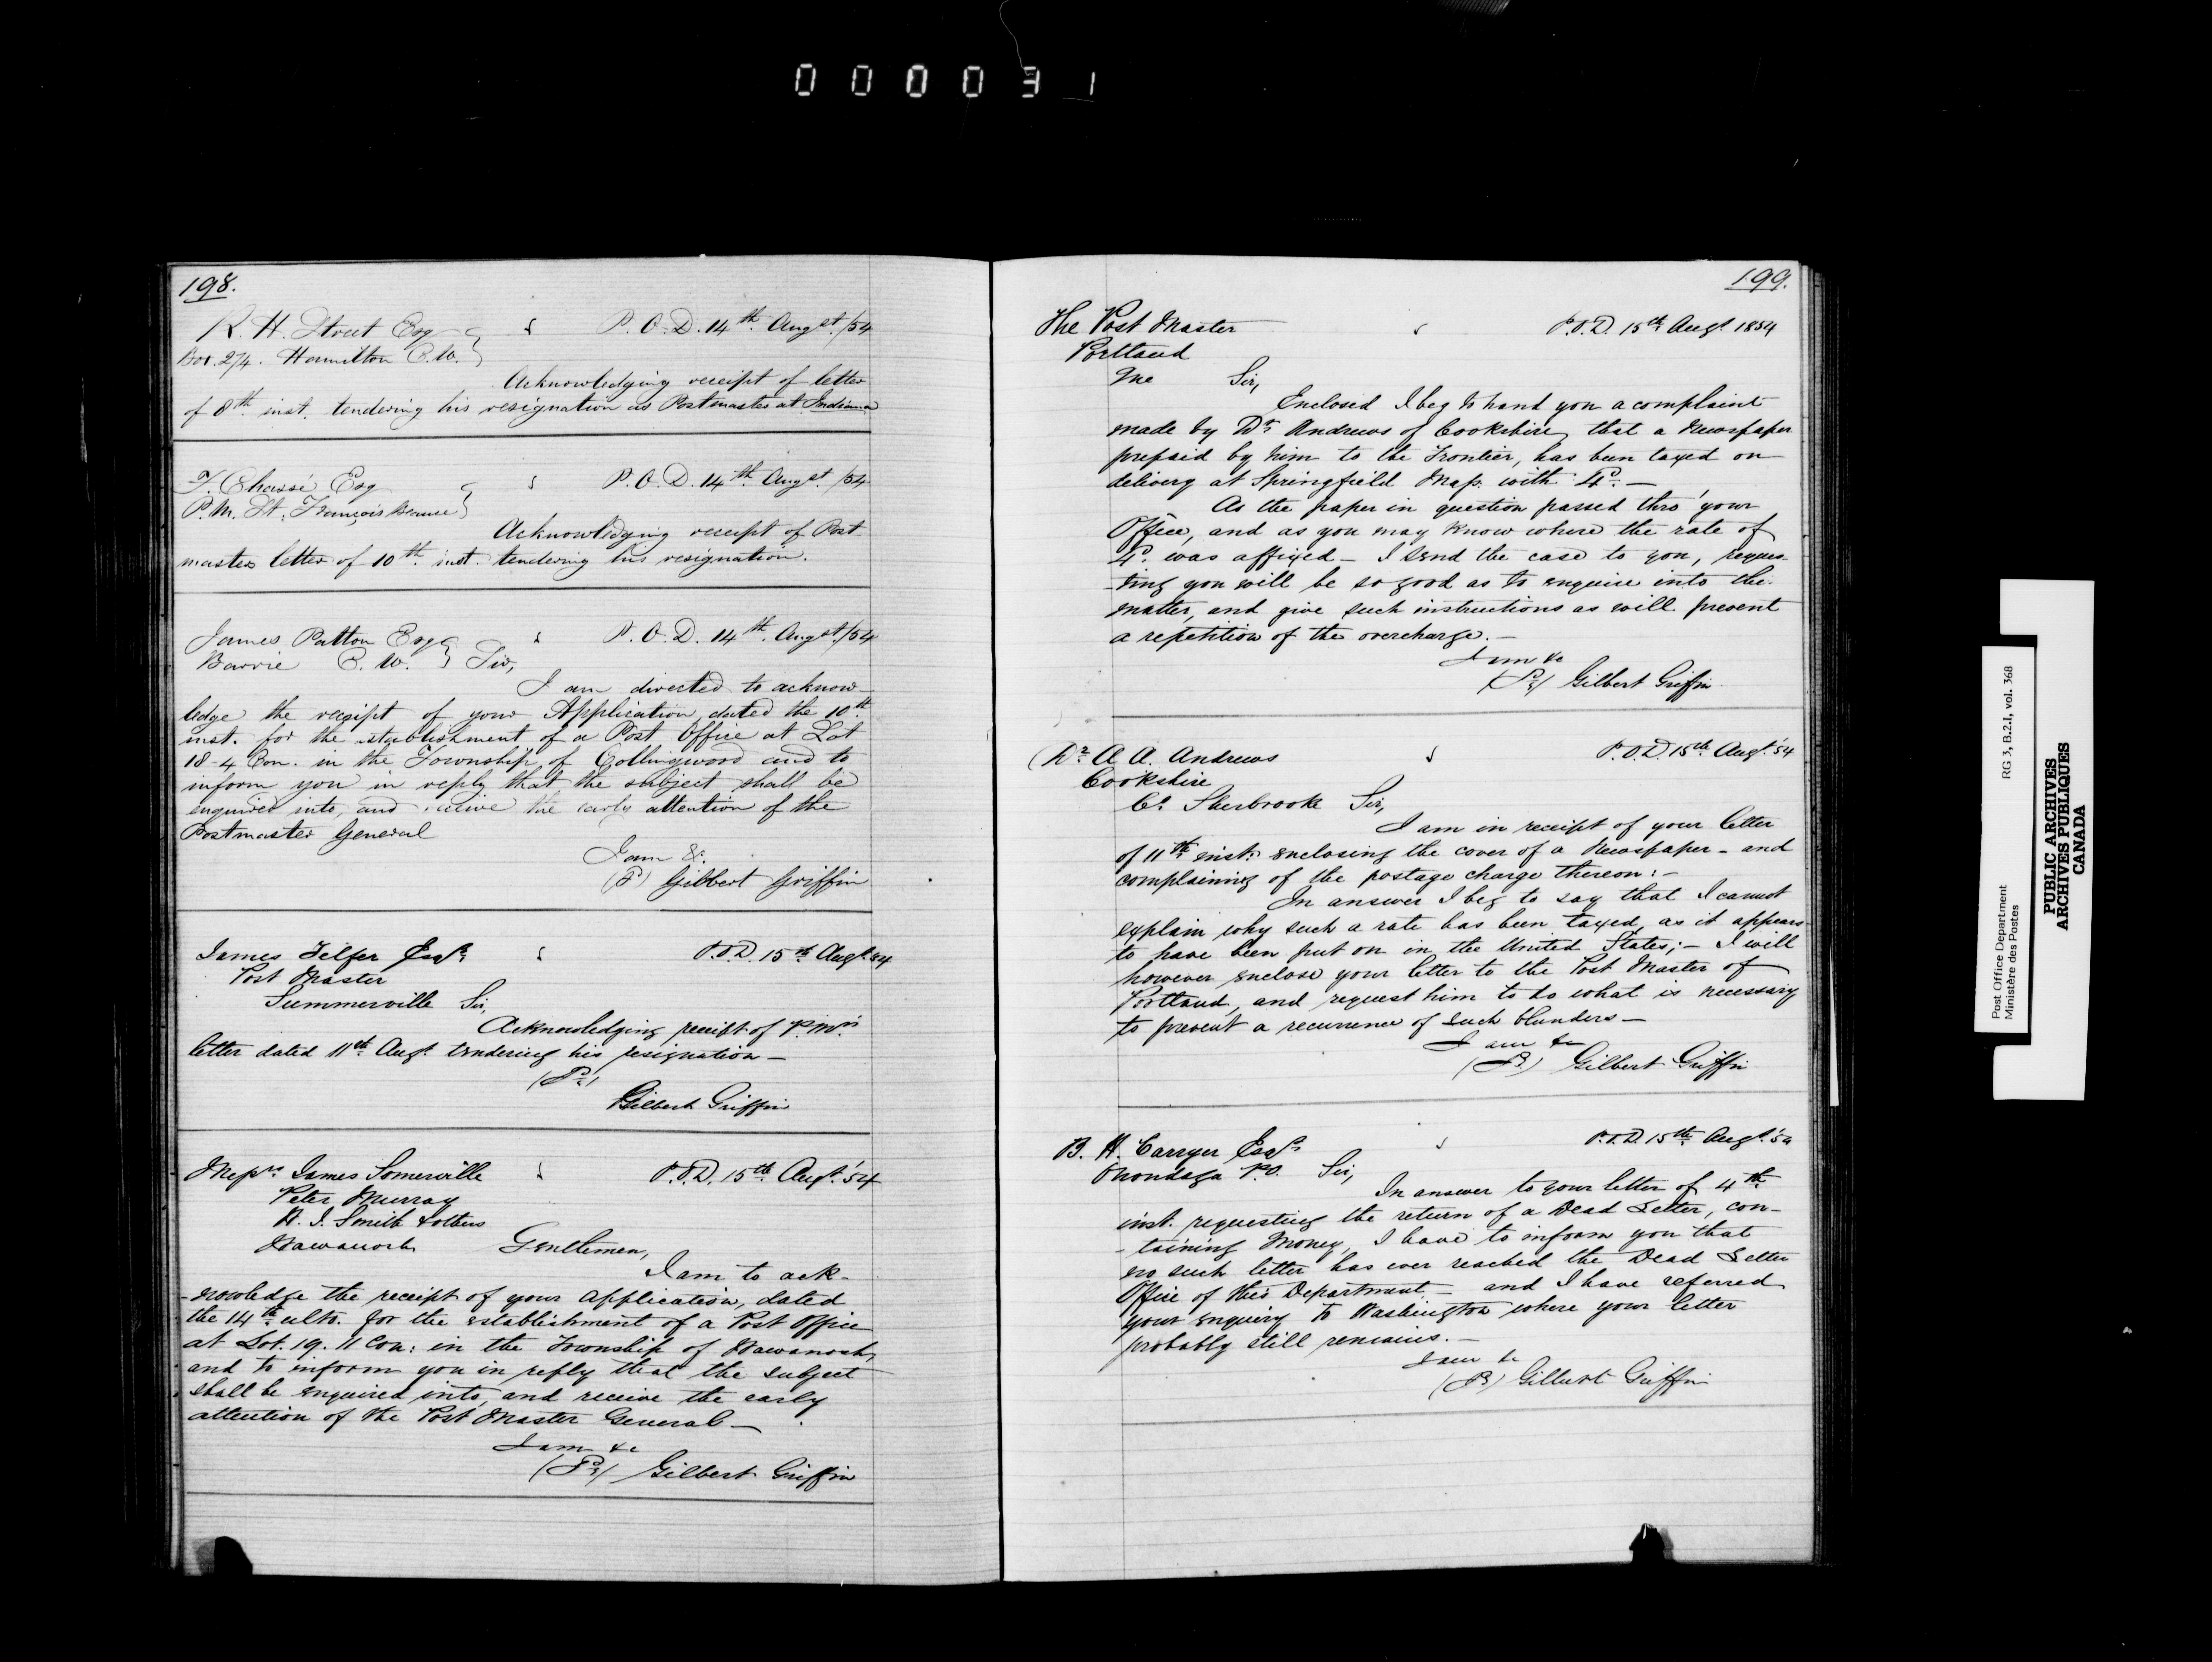 000031
198.
R. H. Street Esq P.O.D. 14th. Augst. /54
Box. 274. Hamilton C.W.
Acknowledging receipt of letter
of 8th. inst. tendering his resignation as Postmaster at Indiana
T. Chassé Esq P.O.D. 14th. Augst. /54
P.M. St. François Beauce
Acknowledging receipt of Post
masters letter of 10th. inst. tendering his resignation.
James Patton Esq P.O.D. 14th. Augst. /54
Barrie C.W. Sir,
I am directed to acknow-
ledge the receipt of your Application, dated the 10th.
inst. for the establishment of a Post Office at Lot
18-4 Con. in the Township of Collingwood and to
inform you in reply that the subject shall be
enquired into, and receive the early attention of the
Postmaster General
I am &c.
Gilbert Griffin
James Telfer Esqr. P.O.D. 15th Augt. 54
Post Master
Summerville Sir,
Acknowledging receipt of P.Mrs.
letter dated 11th. Augt. tendering his resignation —
Gilbert Griffin
Messrs. James Somerville P.O.D. 15th. Augt. '54
Peter Murray
Smith & others
Wawanosh Gentlemen,
I am to ack-
-nowledge the receipt of your application, dated
the 14th. ulto. for the establishment of a Post Office
at Lot. 19. 11 Con: in the Township of Wawanosh,
and to inform you in reply that the subject
shall be enquired into, and receive the early
attention of the Post Master General —
I am &c
Gilbert Griffin
199.
The Post Master P.O.D. 15th Augt. 1854
Portland
Me Sir,
Enclosed I beg to hand you a complaint
made by Dr. Andrews of Cookshire, that a Newspaper
prepaid by him to the Frontier, has been taxed on
delivery at Springfield Mass. with 4c. —
As the paper in question passed thro' your
Office, and as you may know where the rate of
4c. was affixed — I send the case to you, reques-
-ting you will be so good as to enquire into the
matter, and give such instructions as will prevent
a repetition of the overcharge. —
I am &c
Gilbert Griffin
Dr. A. A. Andrews P.O.D. 15th Augt. '54
Cookshire
Co. Sherbrooke Sir,
I am in receipt of your letter
of 11th inst: enclosing the cover of a Newspaper - and
complaining of the postage charge thereon: —
In answer I beg to say that I cannot
explain why such a rate has been taxed, as it appears
to have been put on in the United States; — I will
however enclose your letter to the Post Master of
Portland, and request him to do what is necessary
to prevent a recurrence of such blunders —
I am &c
Gilbert Griffin
B. H. Carryer Esqr. P.O.D. 15th Augt. '54
Onondaga P.O. Sir,
In answer to your letter of 4th
inst. requesting the return of a Dead Letter, con-
-taining Money, I have to inform you that
no such letter has ever reached the Dead Letter
Office of this Department — and I have referred
your enquiry to Washington where your letter
probably still remains. —
I am &c
Gilbert Griffin
Post Office Department RG 3, B.2.1, vol. 368
Ministère des Postes
PUBLIC ARCHIVES
ARCHIVES PUBLIQUES
CANADA